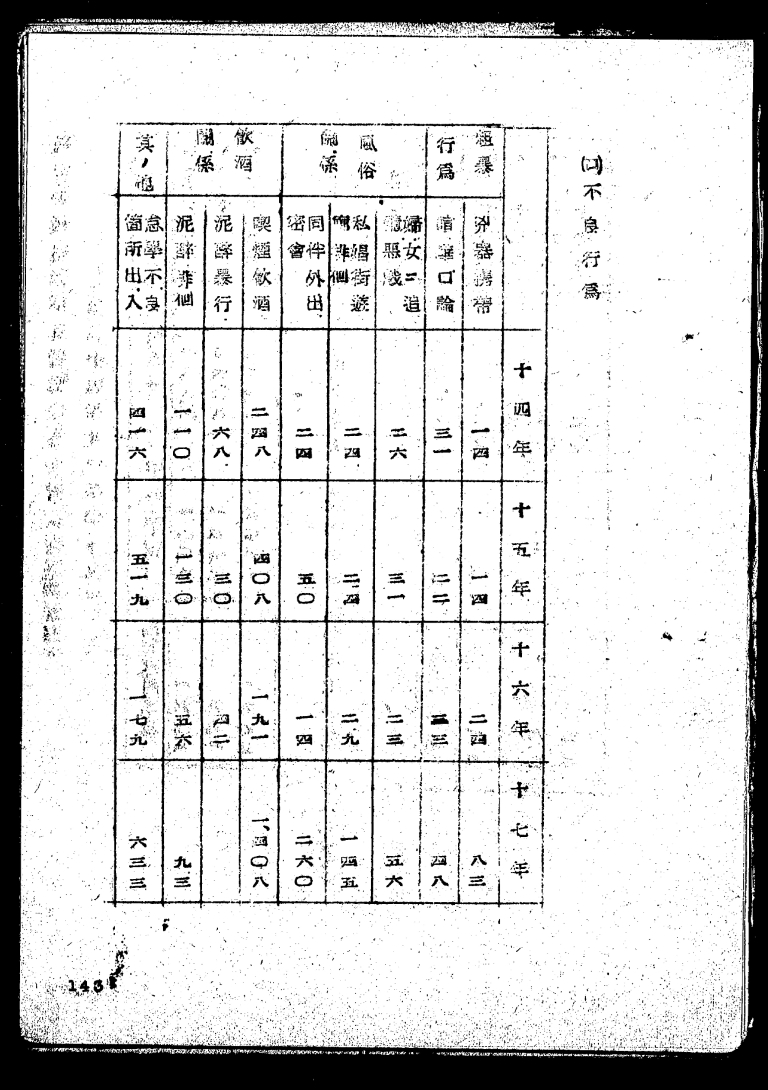 (ロ)不良行爲
十四年 十五年 十六年 十七年
粗暴
行爲
兇器携帶 一四 一四 二四 八三
喧嘩口論 三一 二二 三三 四八
風俗
關係
婦女ニ追
隨惡戲 二六 三一 二三 五六
私娼街遊
廓徘徊 二四 二四 二九 一四五
同伴外出
密會 二四 五〇 一四 二六〇
飲酒
關係
喫煙飲酒 二四八 四〇八 一九一 一、四〇八
泥醉暴行 六八 三〇 四二
泥醉徘徊 一一〇 一三〇 五六 九三
其ノ他
怠學不良
箇所出入 四一六 五一九 一七九 六三三
143